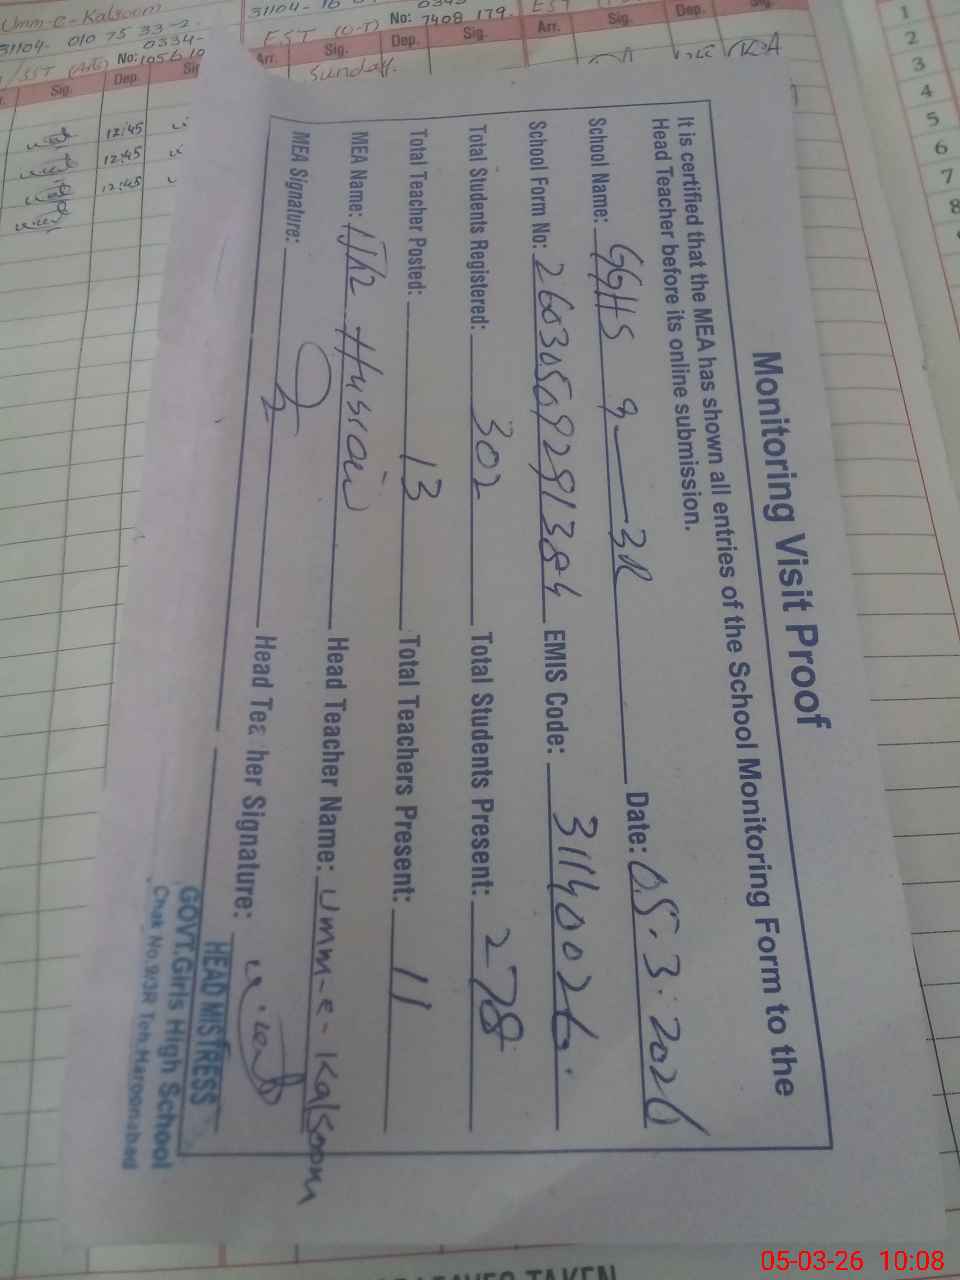 Monitoring Visit Proof
It is certified that the MEA has shown all entries of the School Monitoring Form to the
Head Teacher before its online submission.
School Name: GGHS 9 — 3R Date: 05.3.2026
School Form No: 26030509291384 EMIS Code: 31140026.
Total Students Registered: 302 Total Students Present: 278
Total Teacher Posted: 13 Total Teachers Present: 11
MEA Name: Hussain Head Teacher Name: Umm-e-Kalsoom
MEA Signature: Head Teacher Signature:
HEAD MISTRESS
GOVT.Girls High School
Chak No.9/3R Teh.Haroonabad
Umm-e-Kalsoom
31104- 010 75 33-2.
0334-
/SST (Arts) No:
Sig. Dep.
12:45
12:45
12:45
31104-
EST (O-T) No: 7408 179. EST
Arr. Sig. Dep. Sig. Arr. Sig. Dep. Sig.
Sunday.
1
2
3
4
5
6
7
8
LEAVES TAKEN
05-03-26 10:08